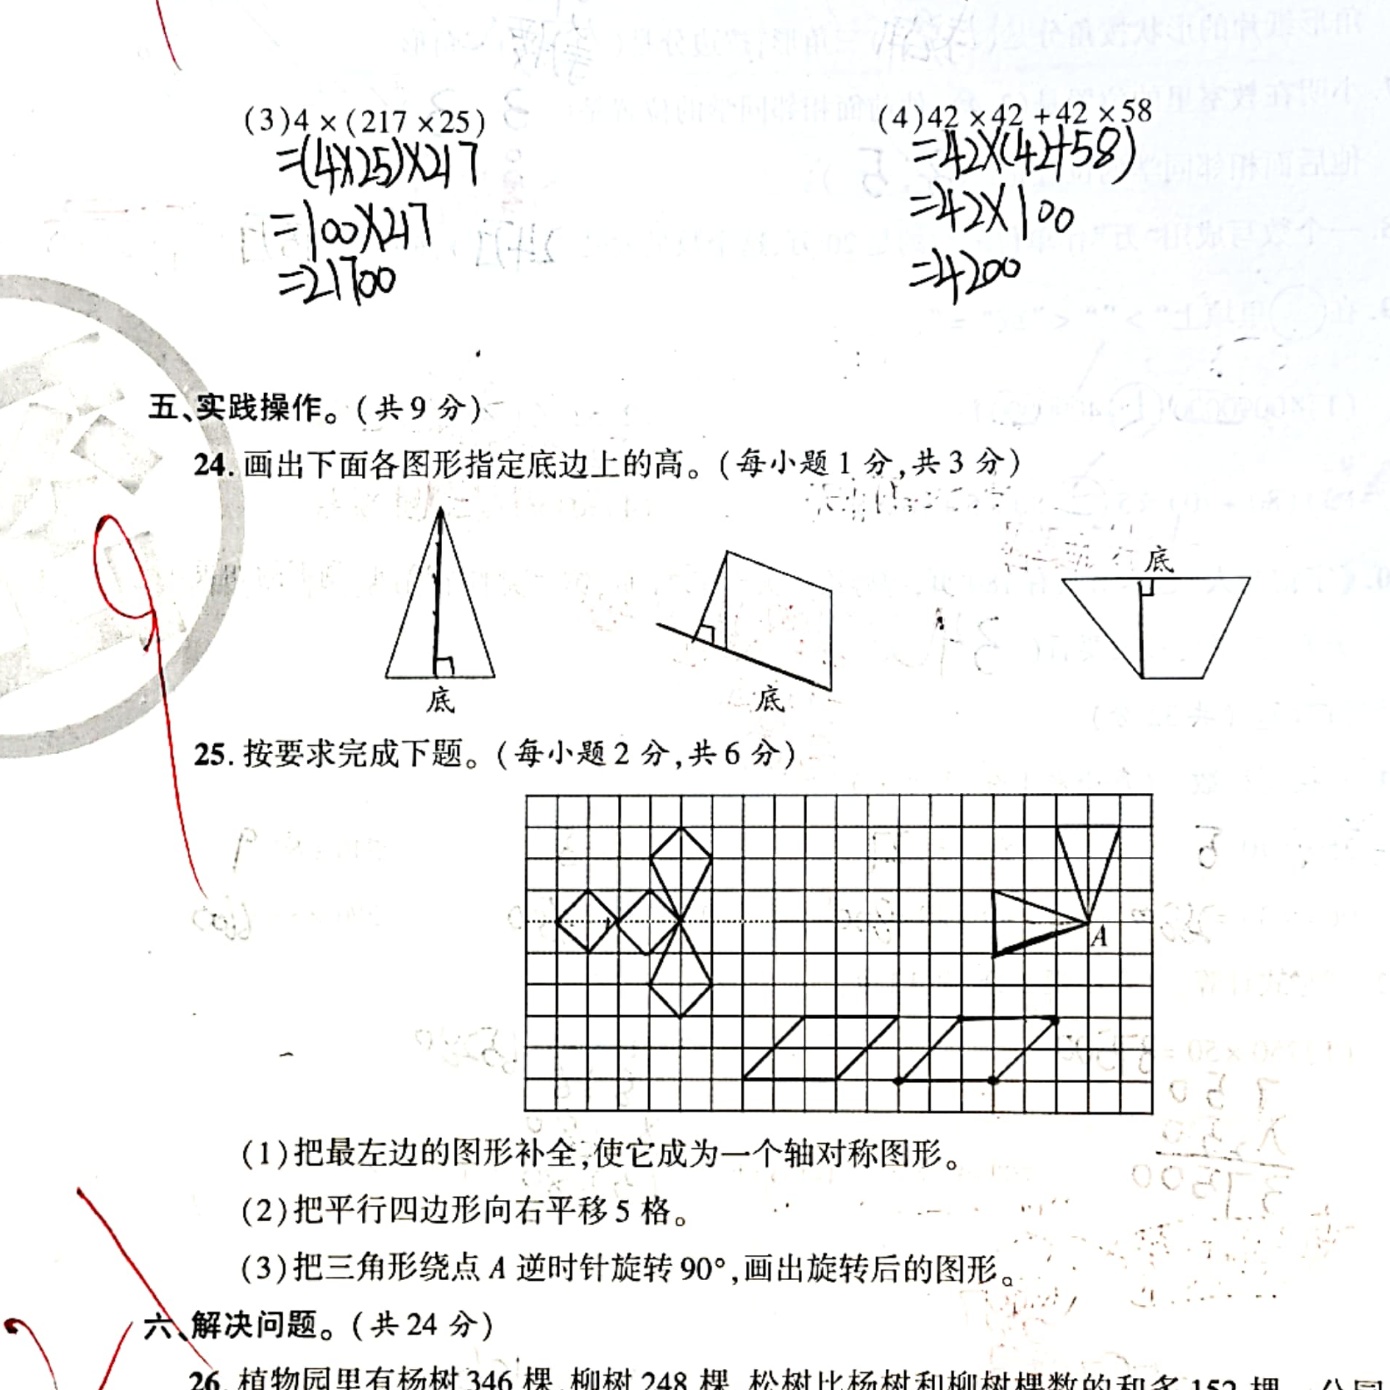 (3)4×(217×25)
=(4×25)×217
=100×217
=21700
(4)42×42+42×58
=42×(42+58)
=42×100
=4200
五、实践操作。(共9分)
24.画出下面各图形指定底边上的高。(每小题1分,共3分)
底
底
底
25.按要求完成下题。(每小题2分,共6分)
A
(1)把最左边的图形补全,使它成为一个轴对称图形。
(2)把平行四边形向右平移5格。
(3)把三角形绕点A逆时针旋转90°,画出旋转后的图形。
六、解决问题。(共24分)
26.植物园里有杨树346棵,柳树248棵,松树比杨树和柳树棵数的和多152棵。